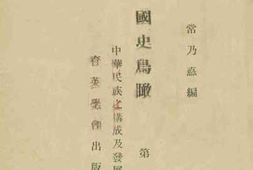 常乃惪編
國史鳥瞰 第
中華民族之構成及發展
育英學會出版